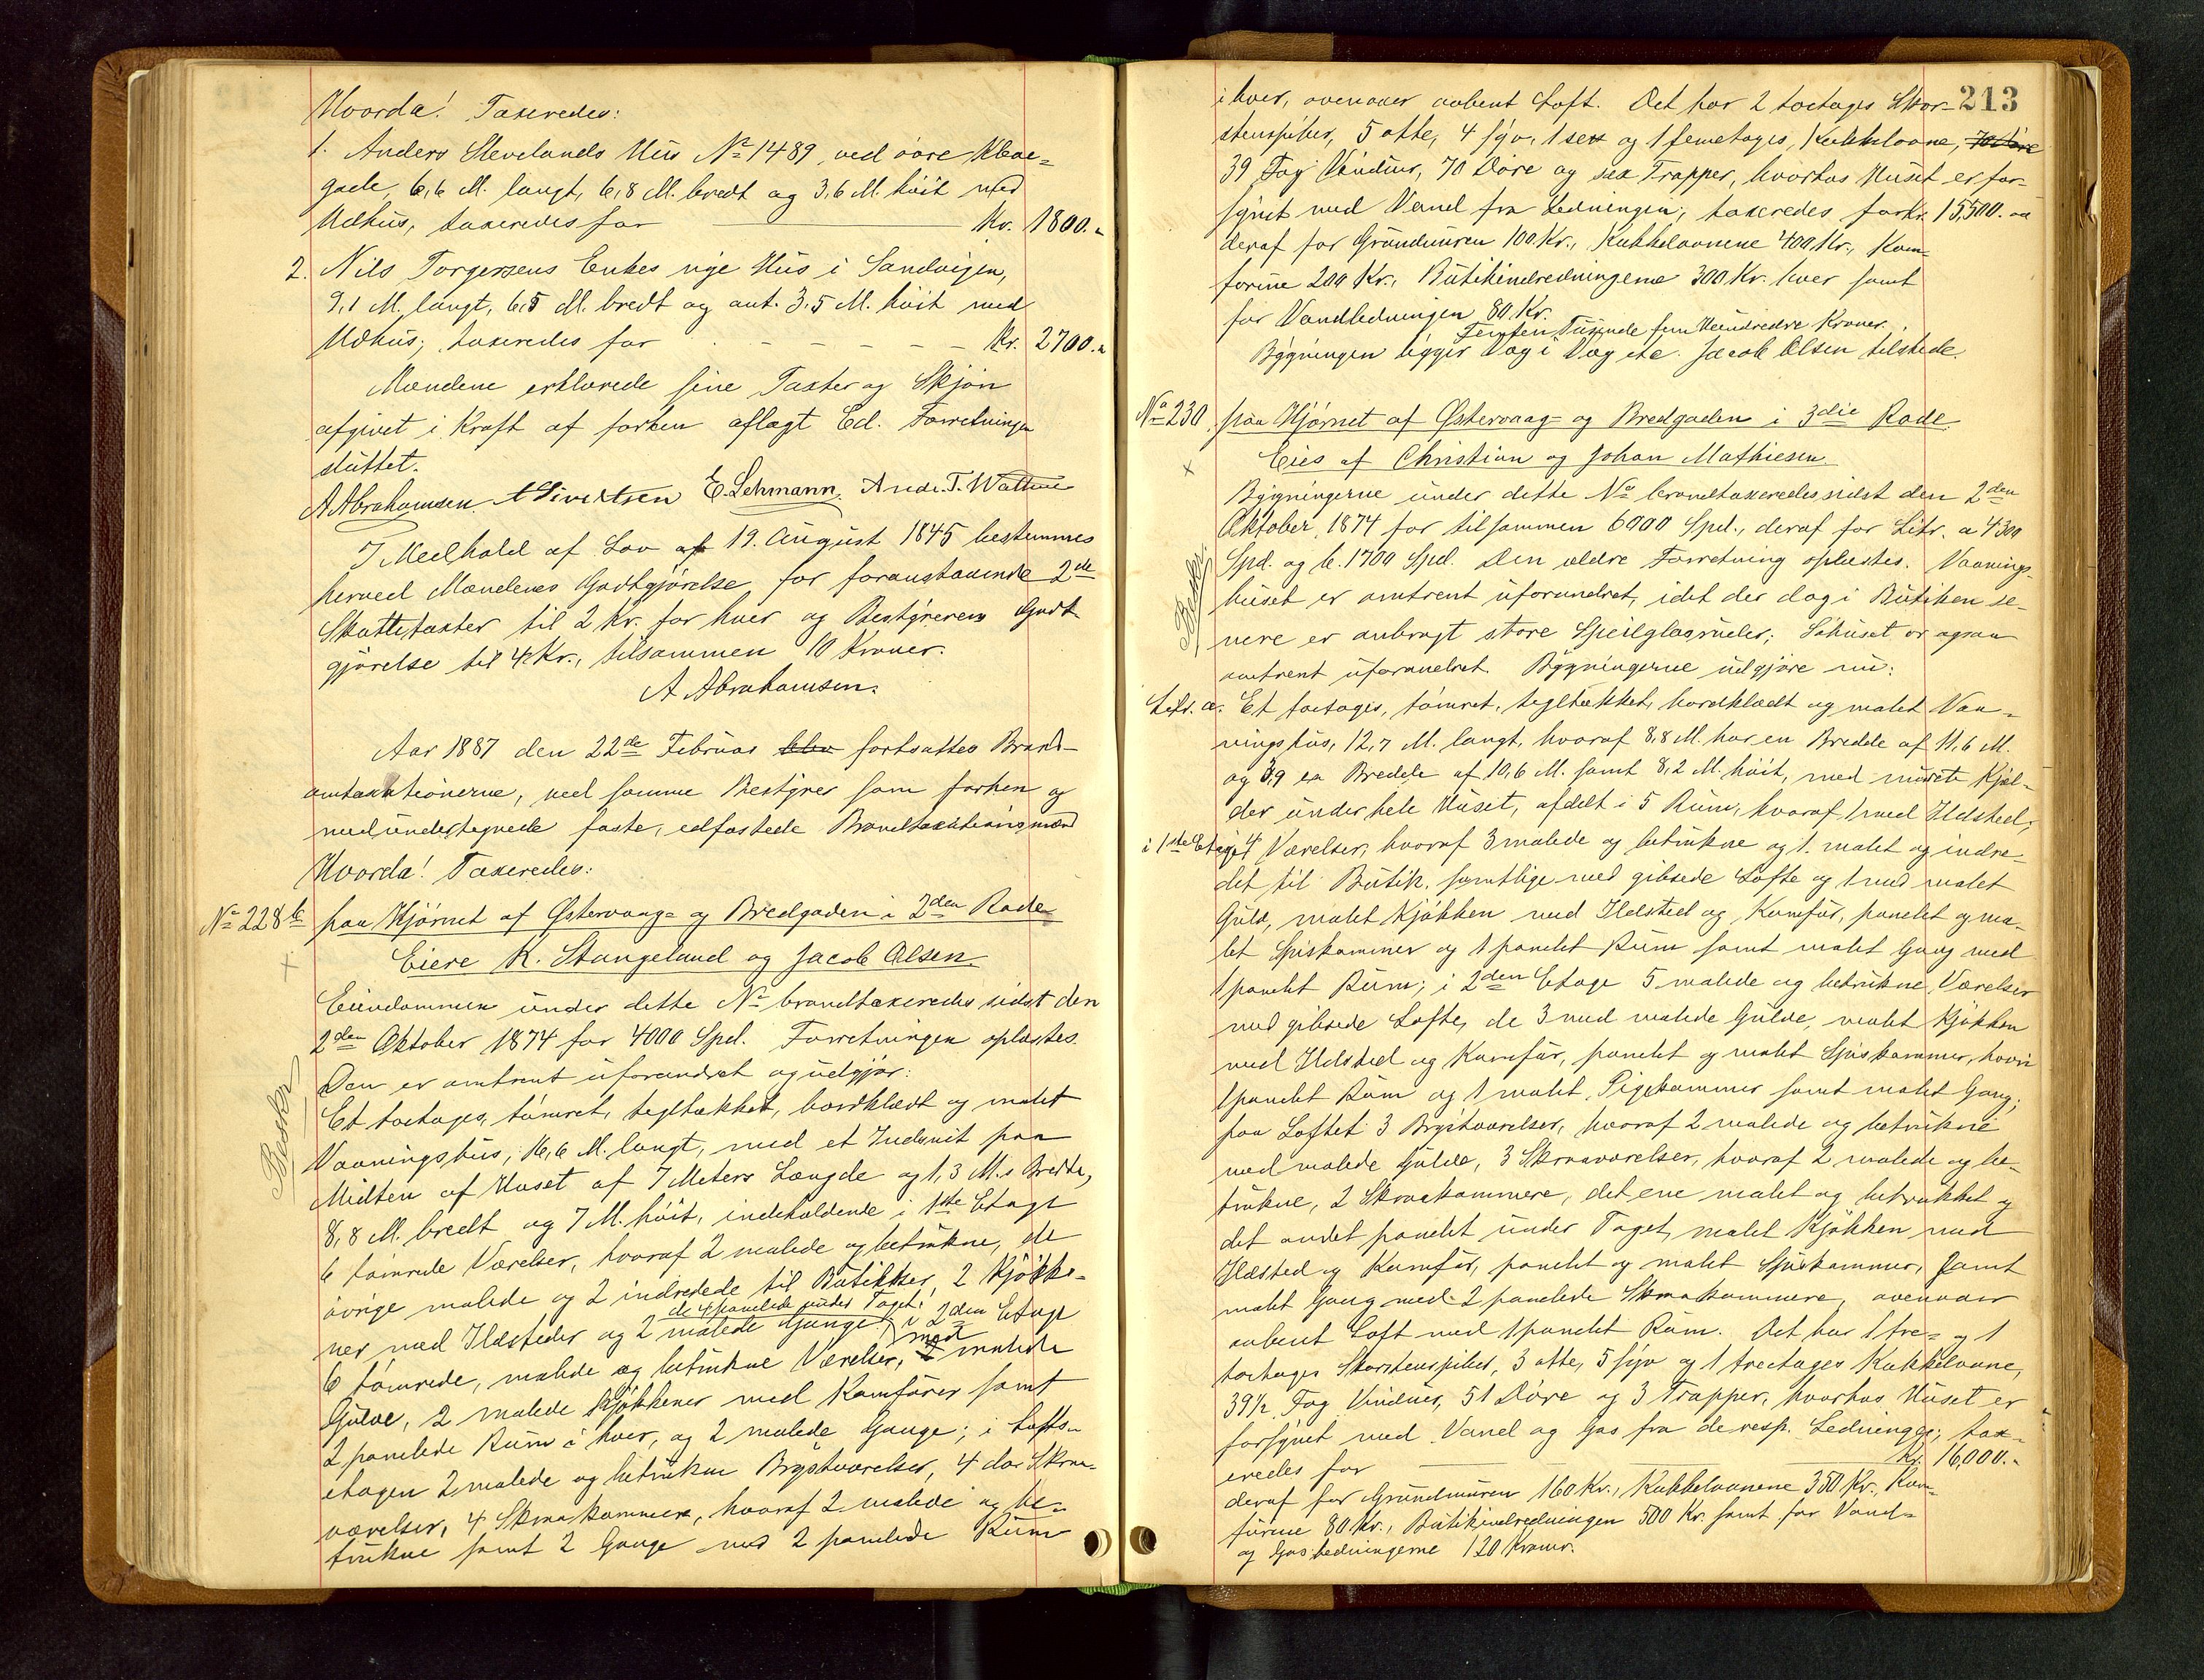 Hvorda! Taxeredes:
1. Anders Stevelands Hus No 1489, ved øvre Kleve-
gade, 6,6 M. langt, 6,8 M. bredt og 3,6 M. høit med
Udhus, taxeredes for Kr. 1800.„
2. Nils Torgersens Enkes nye Hus i Sandvigen,
9,1 M. langt, 6,5 M. bredt og ant. 3.5 M. høit med
Udhus; taxeredes for Kr. 2700.„
Mændene erklærede sine Taxter og Skjøn
afgivet i Kraft af forhen aflagt Ed. Forretningen
sluttet.
A Abrahamsen. A Sivertsen E. Lehmann. Andr. T. Watne
I Medhold af Lov af 19. August 1845 bestemmes
herved Mændenes Godtgjørelse for foranstaaende 2de
Skattetaxter til 2 Kr. for hver og Bestyrerens Godt
gjørelse til 4 Kr., tilsammen 10 Kroner.
A Abrahamsen.
Aar 1887 den 22de Februar blev fortsattes Brand-
omtaxationerne, ved samme Bestyrer som forhen og
medundertegnede faste, edfæstede Brandtaxationsmænd
Hvorda! Taxeredes:
No 228b paa Hjørnet af Østervaag- og Bredgaden i 2den Rode
Eiere K. Stangeland og Jacob Olsen
Eiendommen under dette No brandtaxeredes sidst den
2den Oktober 1874 for 4000 Spd. Forretningen oplæstes.
Den er omtrent uforandret og udgjør:
Besker
Et toetages, tømret, tegltækket, bordklædt og malet
Vaaningshus, 16,6 M. langt, med et Indsnit paa
Midten af Huset af 7 Meters Længde og 1,3 M.s Bredde,
8,8 M. bredt og 7 M. høit, indeholdende i 1ste Etage
6 tømrede Værelser, hvoraf 2 malede og betrukne, de
øvrige malede og 2 indredede til Butikker, 2 Kjøkke-
de 4 panelede under Taget;
ner med Ildsteder og 2 malede Gange; i 2den Etage
6 tømrede, malede og betrukne Værelser, med malede
Gulve, 2 malede Kjøkkener med Komfurer samt
2 panelede Rum i hver, og 2 malede Gange; i Lofts-
etagen 2 malede og betrukne Brystværelser, 4 do Skraa-
værelser, 4 Skraakammere, hvoraf 2 malede og be-
trukne samt 2 Gange med 2 panelede Rum
213
i hver, ovenover aabent Loft. Det har 2 toetages Skor-
stenspiber, 5 otte, 4 syv, 1 sex og 1 femetages Kakkelovne, 70 Døre
39 Fag Vinduer, 70 Døre og sex Trapper, hvorhos Huset er for-
synet med Vand fra Ledningen; taxeredes for Kr. 15,500.00
deraf for Grundmuren 100 Kr., Kakkelovnene 400 Kr., Kom-
furene 200 Kr., Butikindredningerne 300 Kr. hver samt
for Vandledningen 80 Kr.
Femten Tusinde fem Hundredre Kroner.
Bygningen ligger Vag i Vag etc. Jacob Olsen tilstede.
No 230. paa Hjørnet af Østervaag- og Bredgaden i 3die Rode
Eies af Christian og Johan Mathiesen.
Bygningerne under dette No brandtaxeredes sidst den 2den
Oktober 1874 for tilsammen 6000 Spd., deraf for Litr. a 4300
Spd. og b. 1700 Spd. Den ældre Forretning oplæstes. Vaanings-
Besker
huset er omtrent uforandret, idet der dog i Butiken se-
nere er anbragt store Speilglasruder; Søhuset er ogsaa
omtrent uforandret. Bygningerne udgjøre nu:
Litr. a. Et toetages, tømret, tegltækket, bordklædt og malet Vaa-
ningshus, 12,7 M. langt, hvoraf 8,8 M. har en Bredde af 11,6 M.
og 3,9 en Bredde af 10,6 M. samt 8,2 M. høit, med murede Kjæl-
der under hele Huset, afdelt i 5 Rum, hvoraf 1 med Ildsted;
i 1ste Etage 4 Værelser, hvoraf 3 malede og betrukne og 1. malet og indre-
det til Butik, samtlige med gibsede Lofte og 1 med malet
Gulv, malet Kjøkken med Ildsted og Komfur, panelet og ma-
let Spiskammer og 1 panelet Rum samt malet Gang med
1 panelet Rum; i 2den Etage 5 malede og betrukne Værelser
med gibsede Lofte, de 3 med malede Gulve, malet Kjøkken
med Ildsted og Komfur, panelet og malet Spiskammer, hvori
1 panelet Rum og 1 malet Pigekammer samt malet Gang;
paa Loftet 3 Brystværelser, hvoraf 2 malede og betrukne
med malede Gulve, 3 Skraaværelser, hvoraf 2 malede og be-
trukne, 2 Skraakammere, det ene malet og betrukket og
det andet panelet under Taget, malet Kjøkken med
Ildsted og Komfur, panelet og malet Spiskammer, samt
malet Gang med 2 panelede Skraakammere, ovenover
aabent Loft med 1 panelet Rum. Det har 1 tre- og 1
toetages Skorstenspibe, 3 otte, 5 syv og 1 treetages Kakkelovne,
39½ Fag Vinduer, 51 Døre og 3 Trapper, hvorhos Huset er
forsynet med Vand og Gas fra de resp. Ledninger; tax-
eredes for Kr. 16,000.„
deraf for Grundmuren 160 Kr., Kakkelovnene 350 Kr., Kom-
furene 80 Kr., Butikindredningen 500 Kr. samt for Vand-
og Gasledningerne 120 Kroner.